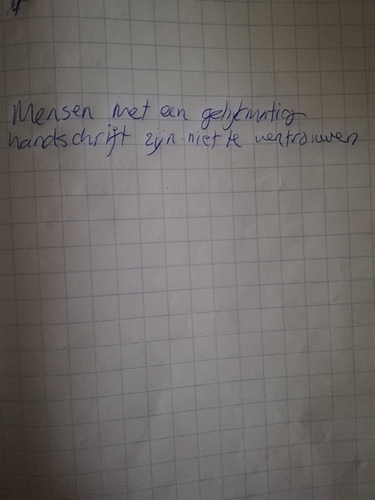 Mensen met een gelijkmatig
handschrift zijn niet te vertrouwen